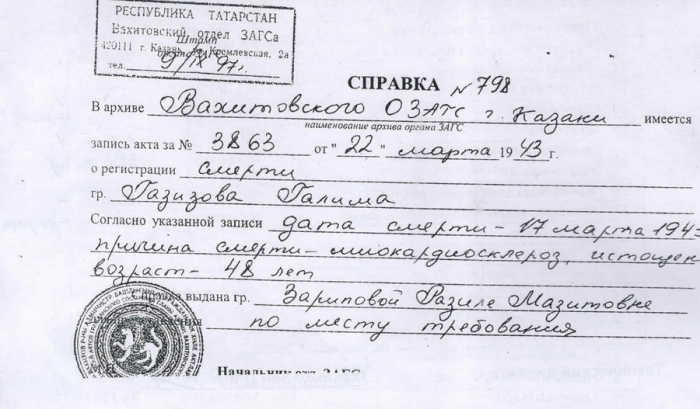 РЕСПУБЛИКА ТАТАРСТАН
Вахитовский отдел ЗАГСа
Штамп
420111 г. Казань, Кремлевская, 2а
тел. 9/IX 97г.
СПРАВКА № 798
В архиве Вахитовского ОЗАГС г. Казани имеется
наименование архива органа ЗАГС
запись акта за № 3863 от "22" марта 1943 г.
о регистрации смерти
гр. Газизова Галима
Согласно указанной записи дата смерти - 17 марта 194
причина смерти - миокардиосклероз, истощен
возраст - 48 лет
выдана гр. Зариповой Разиле Мазитовне
по месту требования
Начальник отд. ЗАГС